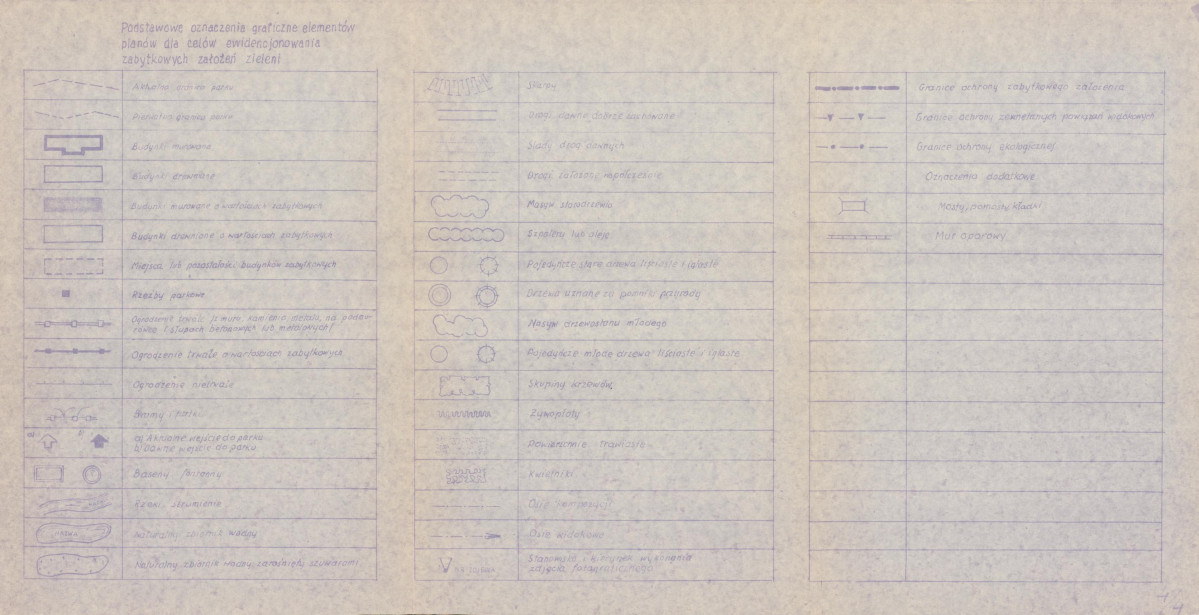 Podstawowe oznaczenia graficzne elementów
planów dla celów ewidencjonowania
zabytkowych założeń zieleni
Aktualna granica parku
Pierwotna granica parku
Budynki murowane
Budynki drewniane
Budynki murowane o wartościach zabytkowych
Budynki drewniane o wartościach zabytkowych
Miejsca lub pozostałości budynków zabytkowych
Rzeźby parkowe
Ogrodzenie trwałe /z muru, kamienia, metalu, na podmu-
rówce i słupach betonowych lub metalowych/
Ogrodzenie trwałe o wartościach zabytkowych
Ogrodzenie nietrwałe
Bramy i furtki
a) b)
a) Aktualne wejście do parku
b) Dawne wejście do parku
Baseny /fontanny
Rzeki, strumienie
Naturalny zbiornik wodny
Naturalny zbiornik wodny zarośnięty szuwarami
Skarpy
Drogi dawne dobrze zachowane
Ślady dróg dawnych
Drogi założone współcześnie
Masyw starodrzewia
Szpalery lub aleje
Pojedyncze stare drzewa liściaste i iglaste
Drzewa uznane za pomniki przyrody
Masyw drzewostanu młodego
Pojedyncze młode drzewa liściaste i iglaste
Skupiny krzewów
Żywopłoty
Powierzchnie trawiaste
Kwietniki
Osie kompozycji
Osie widokowe
Stanowisko i kierunek wykonania
zdjęcia fotograficznego
Granice ochrony zabytkowego założenia
Granice ochrony zewnętrznych powiązań widokowych
Granice ochrony ekologicznej
Oznaczenia dodatkowe
Mosty, pomosty, kładki
Mur oporowy